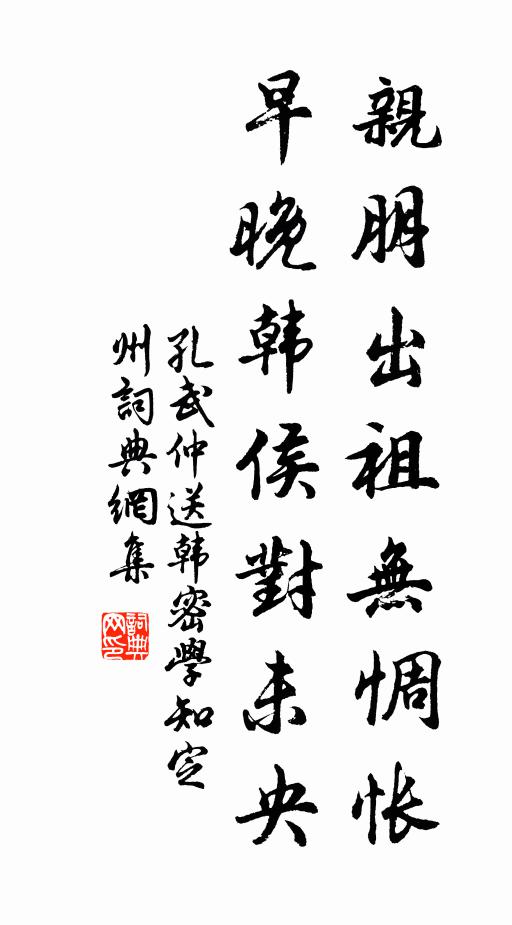 親朋出祖無惆悵
早晚韩侯對未央
孔武仲送韩密學知定
州詞典網集
詞典网印